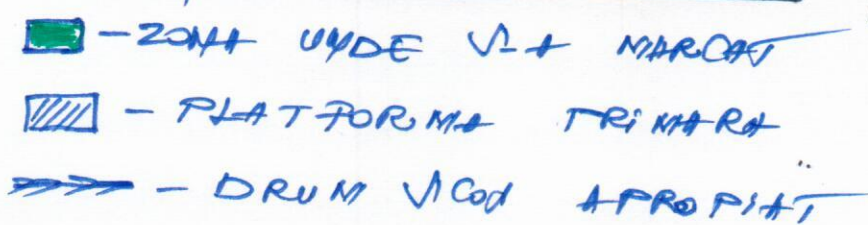 - ZONA UNDE S-A MARCAT
- PLATFORMA PRIMARA
- DRUM SILVIC APROPIAT